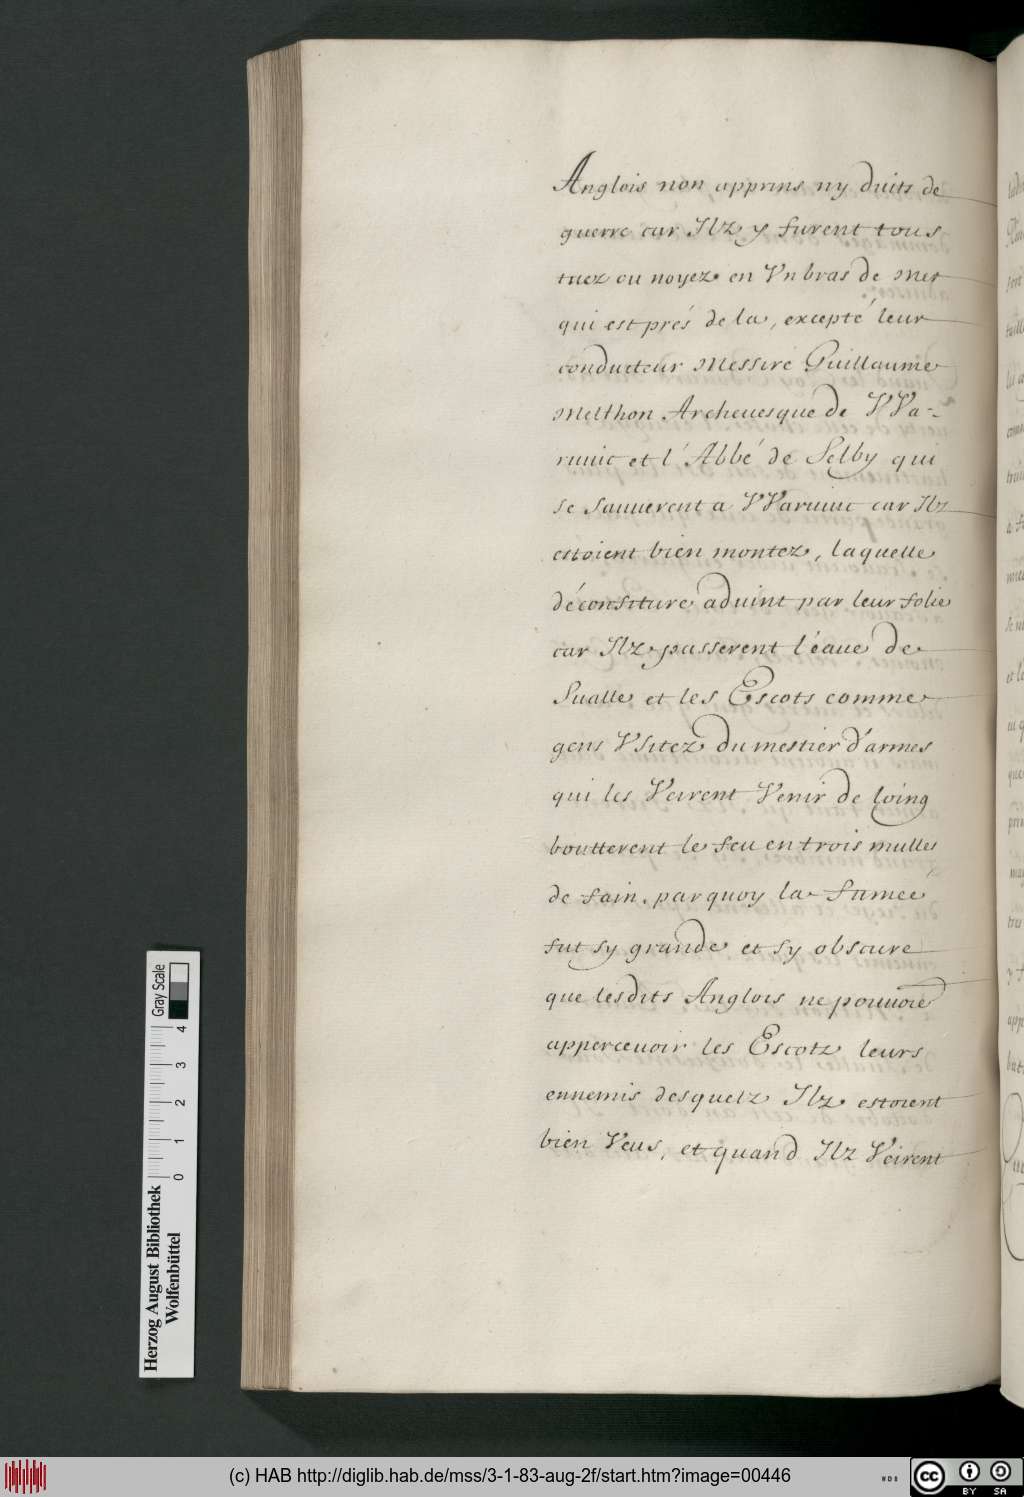 Anglois non apprins ny duits de
guerre car Ilz y furent tous
tuez ou noyez en Vn bras de Mer
qui est prés de la, excepté leur
conducteur Messire Guillaume
Melthon Archeuesque de VVa-
ruuic et l'Abbé de Selby qui
se sauuerent a VVaruuic car Ilz
estoient bien montez, laquelle
déconfiture aduint par leur folie
car Ilz passerent l'éaue de
Sualle et les Escots comme
gens Vsitez du mestier d'armes
qui les Veirent Venir de loing
boutterent le feu en trois mulles
de fain, par quoy la fumeé
fut sy grande et sy obscure
que lesdits Anglois ne pouuoiẽ
apperceuoir les Escotz leurs
ennemis desquelz Ilz estoient
bien Veus, et quand Ilz Veirent
Herzog August Bibliothek
Wolfenbüttel
0 1 2 3 4
Gray Scale
(c) HAB http://diglib.hab.de/mss/3-1-83-aug-2f/start.htm?image=00446
WDB
cc BY SA